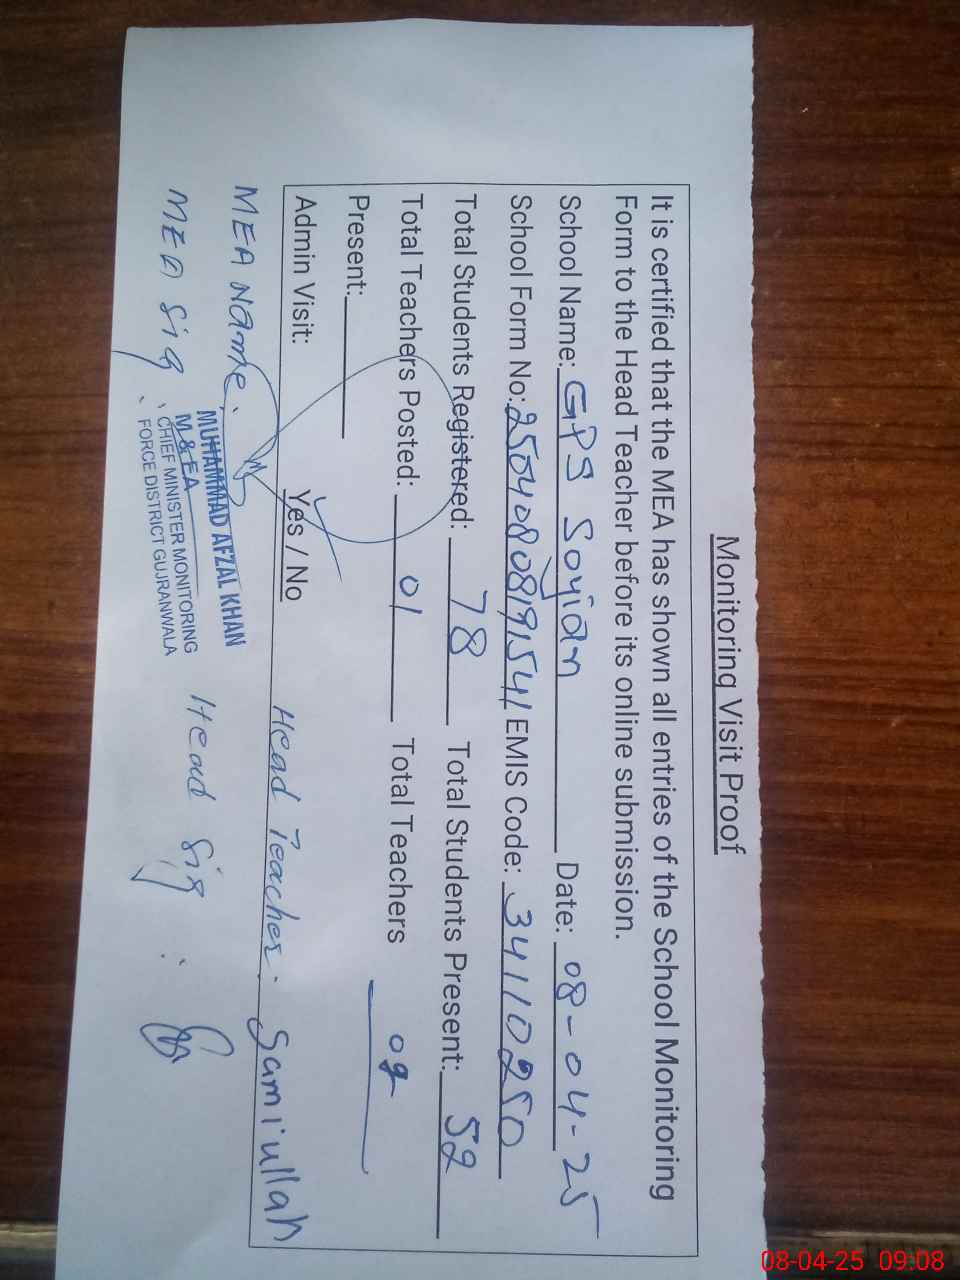 Monitoring Visit Proof
It is certified that the MEA has shown all entries of the School Monitoring
Form to the Head Teacher before its online submission.
School Name: GPS Sojian Date: 08-04-25
School Form No: 25040808191541 EMIS Code: 34110250
Total Students Registered: 78 Total Students Present: 52
Total Teachers Posted: 01 Total Teachers 02
Present:
Admin Visit: Yes / No
Head Teacher. Samiullah
MEA Name.
MUHAMMAD AFZAL KHAN
M & EA
CHIEF MINISTER MONITORING
FORCE DISTRICT GUJRANWALA
MEA Sig Head Sig
08-04-25 09:08